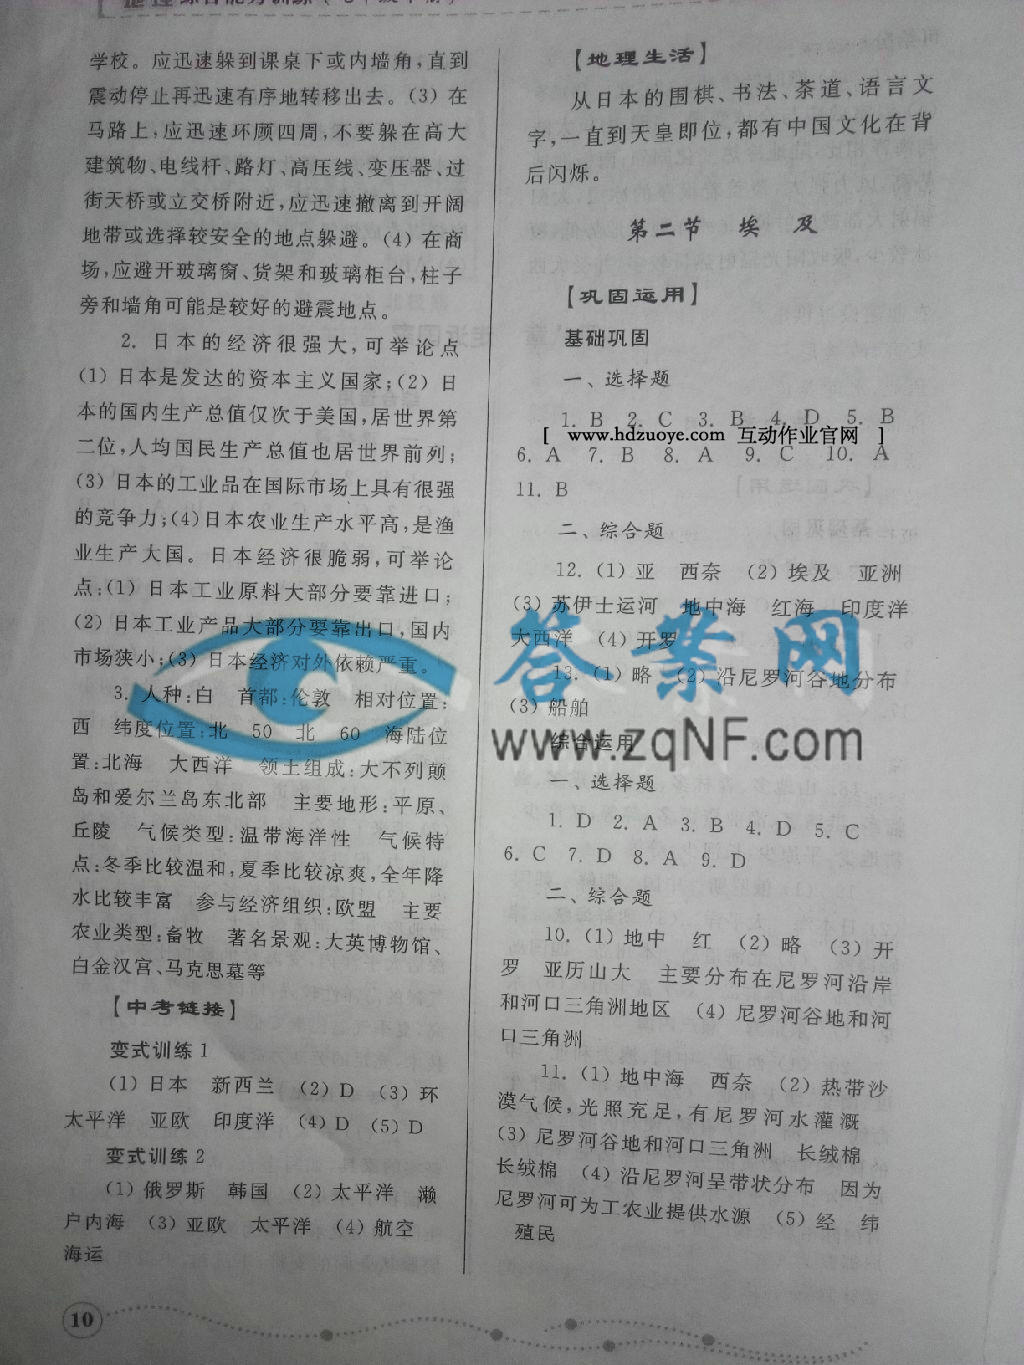 地理综合能力训练(七年级下册)
学校。应迅速躲到课桌下或内墙角,直到
震动停止再迅速有序地转移出去。(3)在
马路上,应迅速环顾四周,不要躲在高大
建筑物、电线杆、路灯、高压线、变压器、过
街天桥或立交桥附近,应迅速撤离到开阔
地带或选择较安全的地点躲避。(4)在商
场,应避开玻璃窗、货架和玻璃柜台,柱子
旁和墙角可能是较好的避震地点。
2. 日本的经济很强大,可举论点
(1)日本是发达的资本主义国家;(2)日
本的国内生产总值仅次于美国,居世界第
二位,人均国民生产总值也居世界前列;
(3)日本的工业品在国际市场上具有很强
的竞争力;(4)日本农业生产水平高,是渔
业生产大国。日本经济很脆弱,可举论
点:(1)日本工业原料大部分要靠进口;
(2)日本工业产品大部分要靠出口,国内
市场狭小;(3)日本经济对外依赖严重。
3. 人种:白 首都:伦敦 相对位置:
西 纬度位置:北 50 北 60 海陆位
置:北海 大西洋 领土组成:大不列颠
岛和爱尔兰岛东北部 主要地形:平原、
丘陵 气候类型:温带海洋性 气候特
点:冬季比较温和,夏季比较凉爽,全年降
水比较丰富 参与经济组织:欧盟 主要
农业类型:畜牧 著名景观:大英博物馆、
白金汉宫、马克思墓等
【中考链接】
变式训练1
(1)日本 新西兰 (2)D (3)环
太平洋 亚欧 印度洋 (4)D (5)D
变式训练2
(1)俄罗斯 韩国 (2)太平洋 濑
户内海 (3)亚欧 太平洋 (4)航空
海运
【地理生活】
从日本的围棋、书法、茶道、语言文
字,一直到天皇即位,都有中国文化在背
后闪烁。
第二节 埃 及
【巩固运用】
基础巩固
一、选择题
1. B 2. C 3. B 4. D 5. B
[ www.hdzuoye.com 互动作业官网 ]
6. A 7. B 8. A 9. C 10. A
11. B
二、综合题
12. (1)亚 西奈 (2)埃及 亚洲
(3)苏伊士运河 地中海 红海 印度洋
大西洋 (4)开罗
13. (1)略 (2)沿尼罗河谷地分布
(3)船舶
答案网
www.zqNF.com
综合运用
一、选择题
1. D 2. A 3. B 4. D 5. C
6. C 7. D 8. A 9. D
二、综合题
10. (1)地中 红 (2)略 (3)开
罗 亚历山大 主要分布在尼罗河沿岸
和河口三角洲地区 (4)尼罗河谷地和河
口三角洲
11. (1)地中海 西奈 (2)热带沙
漠气候,光照充足,有尼罗河水灌溉
(3)尼罗河谷地和河口三角洲 长绒棉
长绒棉 (4)沿尼罗河呈带状分布 因为
尼罗河可为工农业提供水源 (5)经 纬
殖民
10